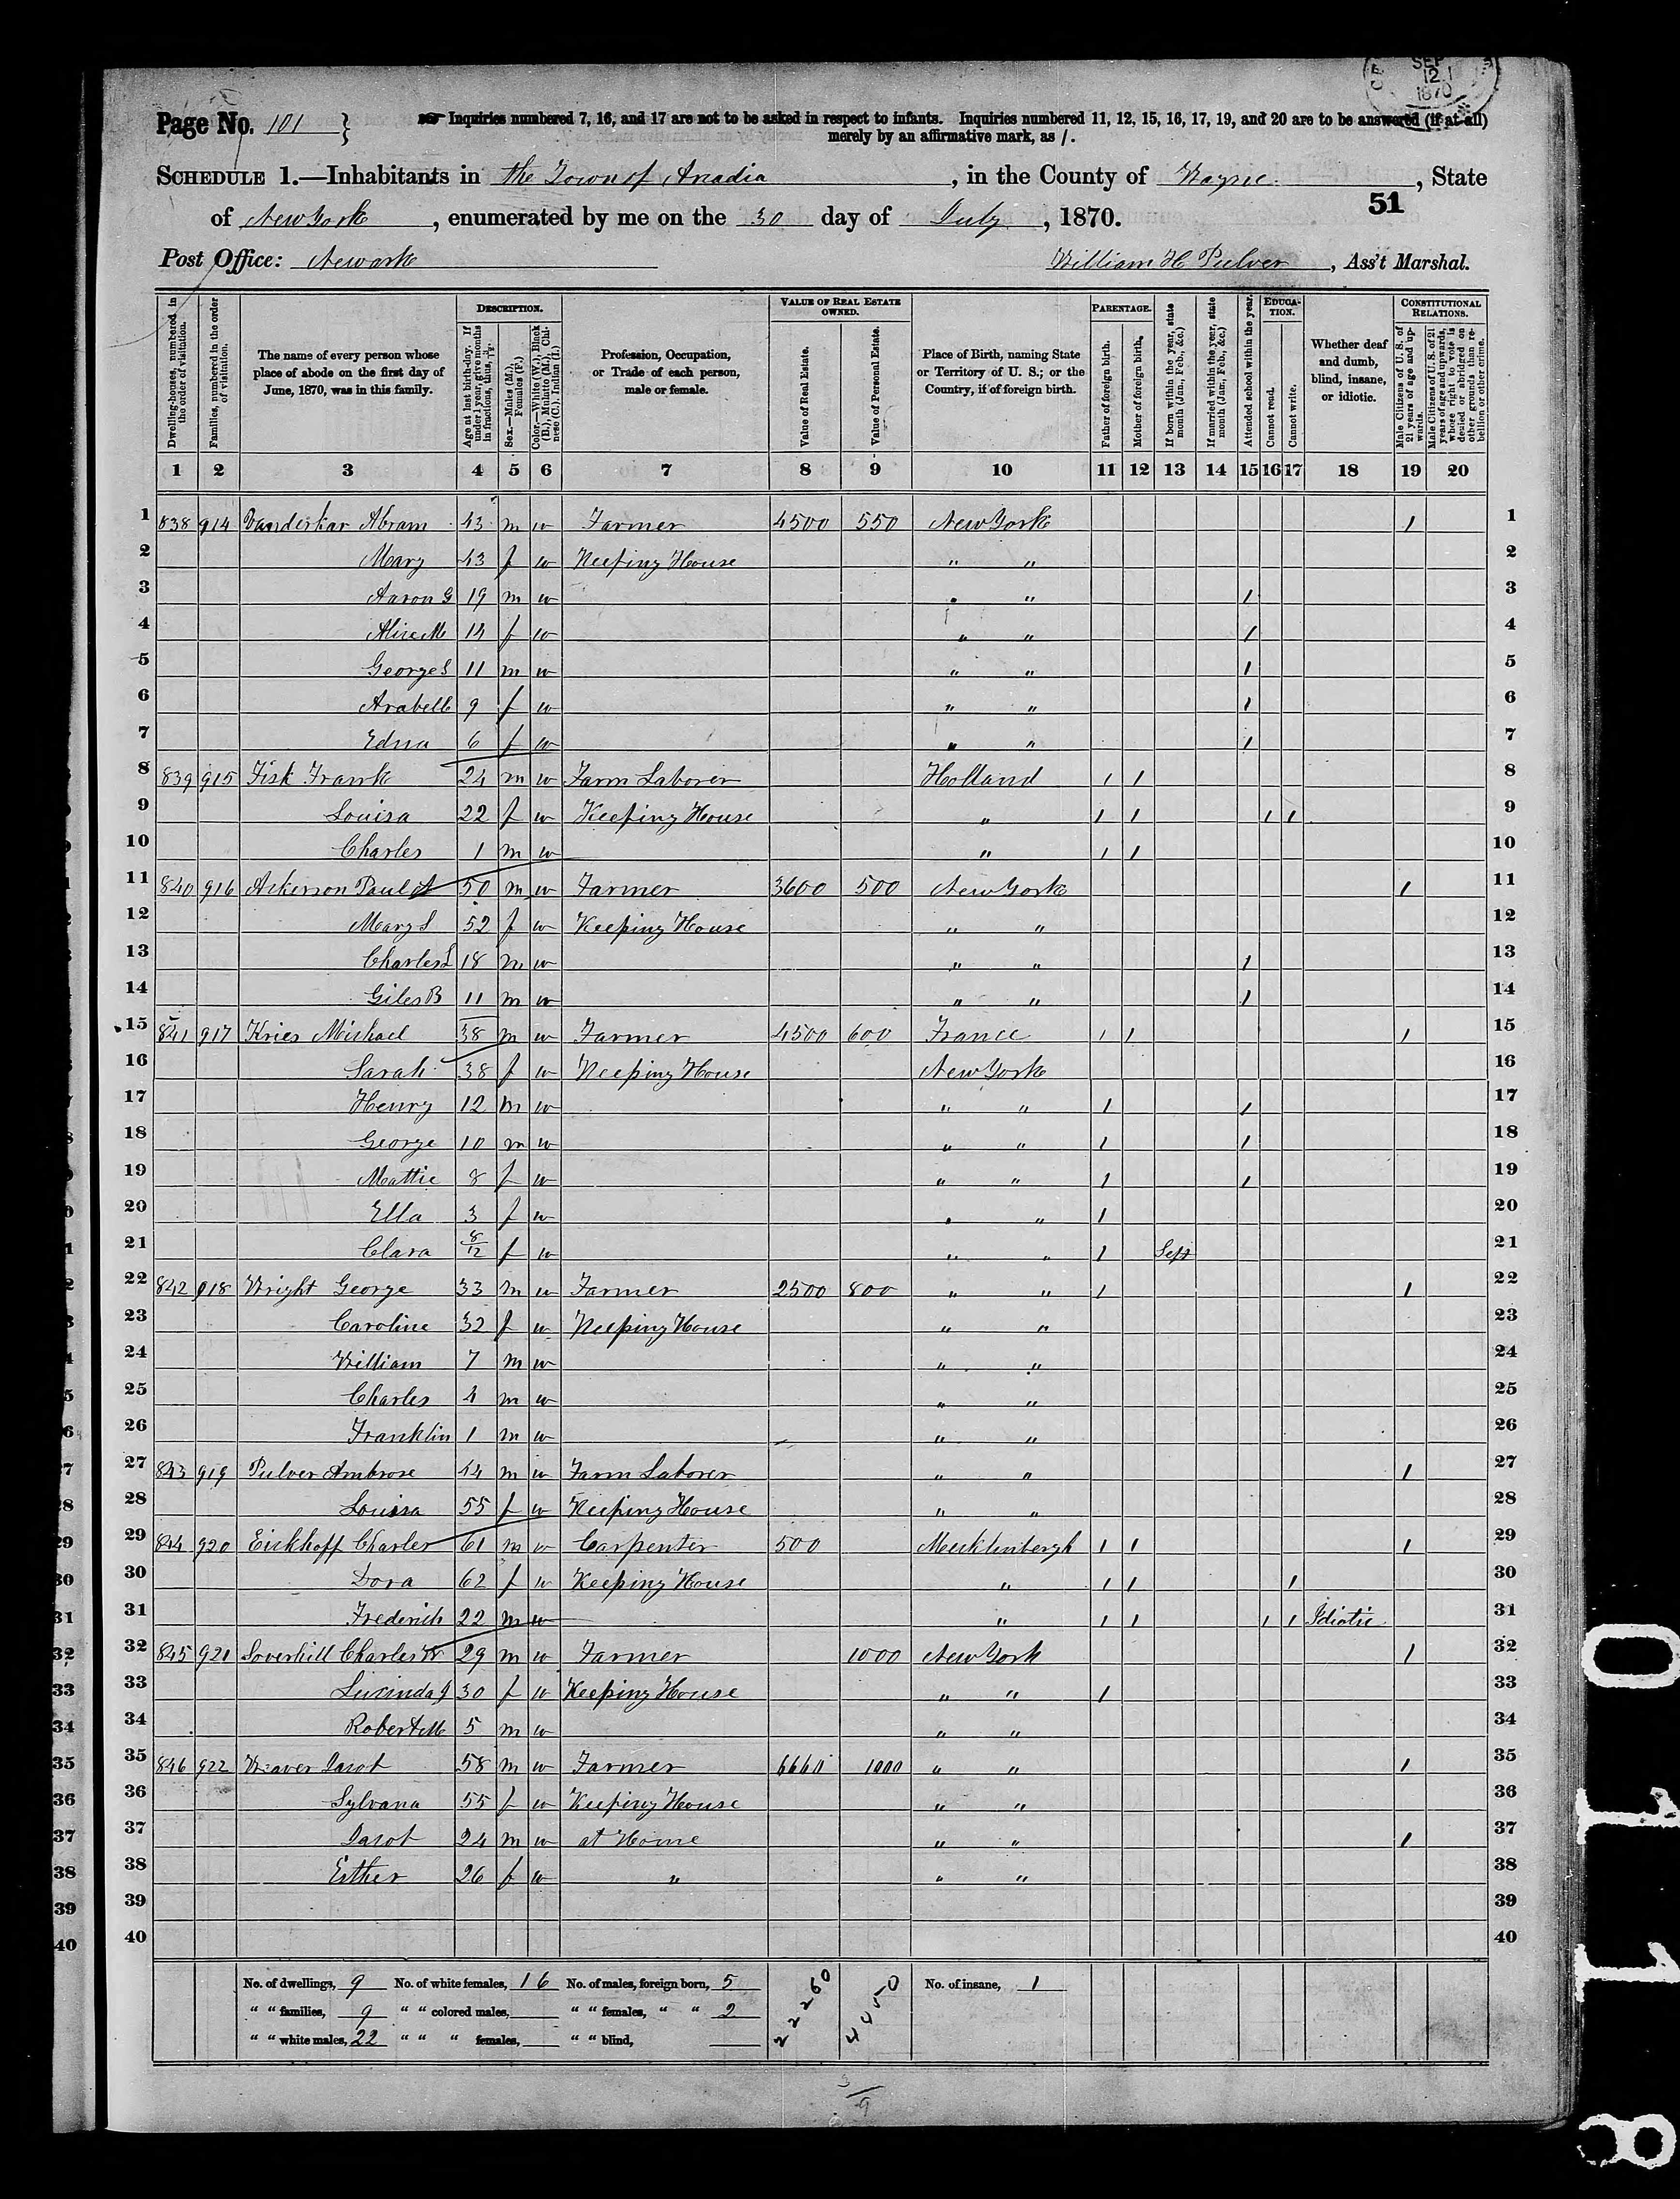 SEP 12 1870
Page No. 101 } Inquiries numbered 7, 16, and 17 are not to be asked in respect to infants. Inquiries numbered 11, 12, 15, 16, 17, 19, and 20 are to be answered (if at all)
merely by an affirmative mark, as /.
SCHEDULE 1.—Inhabitants in the Town of Arcadia, in the County of Wayne, State
of New York, enumerated by me on the 30 day of July, 1870.
51
Post Office: Newark William H Pulver, Ass't Marshal.
Dwelling-houses, numbered in the order of visitation.
Families, numbered in the order of visitation.
The name of every person whose place of abode on the first day of June, 1870, was in this family.
DESCRIPTION.
Age at last birth-day. If under 1 year, give months in fractions, thus, 3/12.
Sex.—Males (M.), Females (F.)
Color.—White (W.), Black (B.), Mulatto (M.), Chinese (C.), Indian (I.)
Profession, Occupation, or Trade of each person, male or female.
VALUE OF REAL ESTATE OWNED.
Value of Real Estate.
Value of Personal Estate.
Place of Birth, naming State or Territory of U. S.; or the Country, if of foreign birth.
PARENTAGE.
Father of foreign birth.
Mother of foreign birth.
If born within the year, state month (Jan., Feb., &c.)
If married within the year, state month (Jan., Feb., &c.)
Attended school within the year.
EDUCATION.
Cannot read.
Cannot write.
Whether deaf and dumb, blind, insane, or idiotic.
CONSTITUTIONAL RELATIONS.
Male Citizens of U. S. of 21 years of age and upwards.
Male Citizens of U. S. of 21 years of age and upwards, whose right to vote is denied or abridged on other grounds than rebellion or other crime.
1 2 3 4 5 6 7 8 9 10 11 12 13 14 15 16 17 18 19 20
1 838 914 Vanderkar Abram 43 m w Farmer 4500 550 New York 1 1
2 Mary 43 f w Keeping House " " 2
3 Aaron G 19 m w " " 1 3
4 Alice M 14 f w " " 1 4
5 George S 11 m w " " 1 5
6 Arabell 9 f w " " 1 6
7 Edna 6 f w " " 1 7
8 839 915 Fisk Frank 24 m w Farm Laborer Holland 1 1 8
9 Louisa 22 f w Keeping House " 1 1 1 1 9
10 Charles 1 m w " 1 1 10
11 840 916 Ackerson Paul A 50 m w Farmer 3600 500 New York 1 11
12 Mary S 52 f w Keeping House " " 12
13 Charles L 18 m w " " 1 13
14 Giles B 11 m w " " 1 14
15 841 917 Kries Michael 38 m w Farmer 4500 600 France 1 1 1 15
16 Sarah 38 f w Keeping House New York 16
17 Henry 12 m w " " 1 1 17
18 George 10 m w " " 1 1 18
19 Mattie 8 f w " " 1 1 19
20 Ella 3 f w " " 1 20
21 Clara 8/12 f w " " 1 Sept 21
22 842 918 Wright George 33 m w Farmer 2500 800 " " 1 1 22
23 Caroline 32 f w Keeping House " " 23
24 William 7 m w " " 24
25 Charles 4 m w " " 25
26 Franklin 1 m w " " 26
27 843 919 Pulver Ambrose 44 m w Farm Laborer " " 1 27
28 Louisa 55 f w Keeping House " " 28
29 844 920 Eickhoff Charles 61 m w Carpenter 500 Mecklinbergh 1 1 1 29
30 Dora 62 f w Keeping House " 1 1 1 30
31 Frederich 22 m w " 1 1 1 1 Idiotic 31
32 845 921 Soverhill Charles W 29 m w Farmer 1000 New York 1 32
33 Lucinda J 30 f w Keeping House " " 1 33
34 Robert M 5 m w " " 34
35 846 922 Weaver Jacob 58 m w Farmer 6660 1000 " " 1 35
36 Sylvana 55 f w Keeping House " " 36
37 Jacob 24 m w at Home " " 1 37
38 Esther 26 f w " " " 38
39 39
40 40
No. of dwellings, 9 No. of white females, 16 No. of males, foreign born, 5 22260 4450 No. of insane, 1
" " families, 9 " " colored males, " " females, " " 2
" " white males, 22 " " " females, " " blind,
3/9